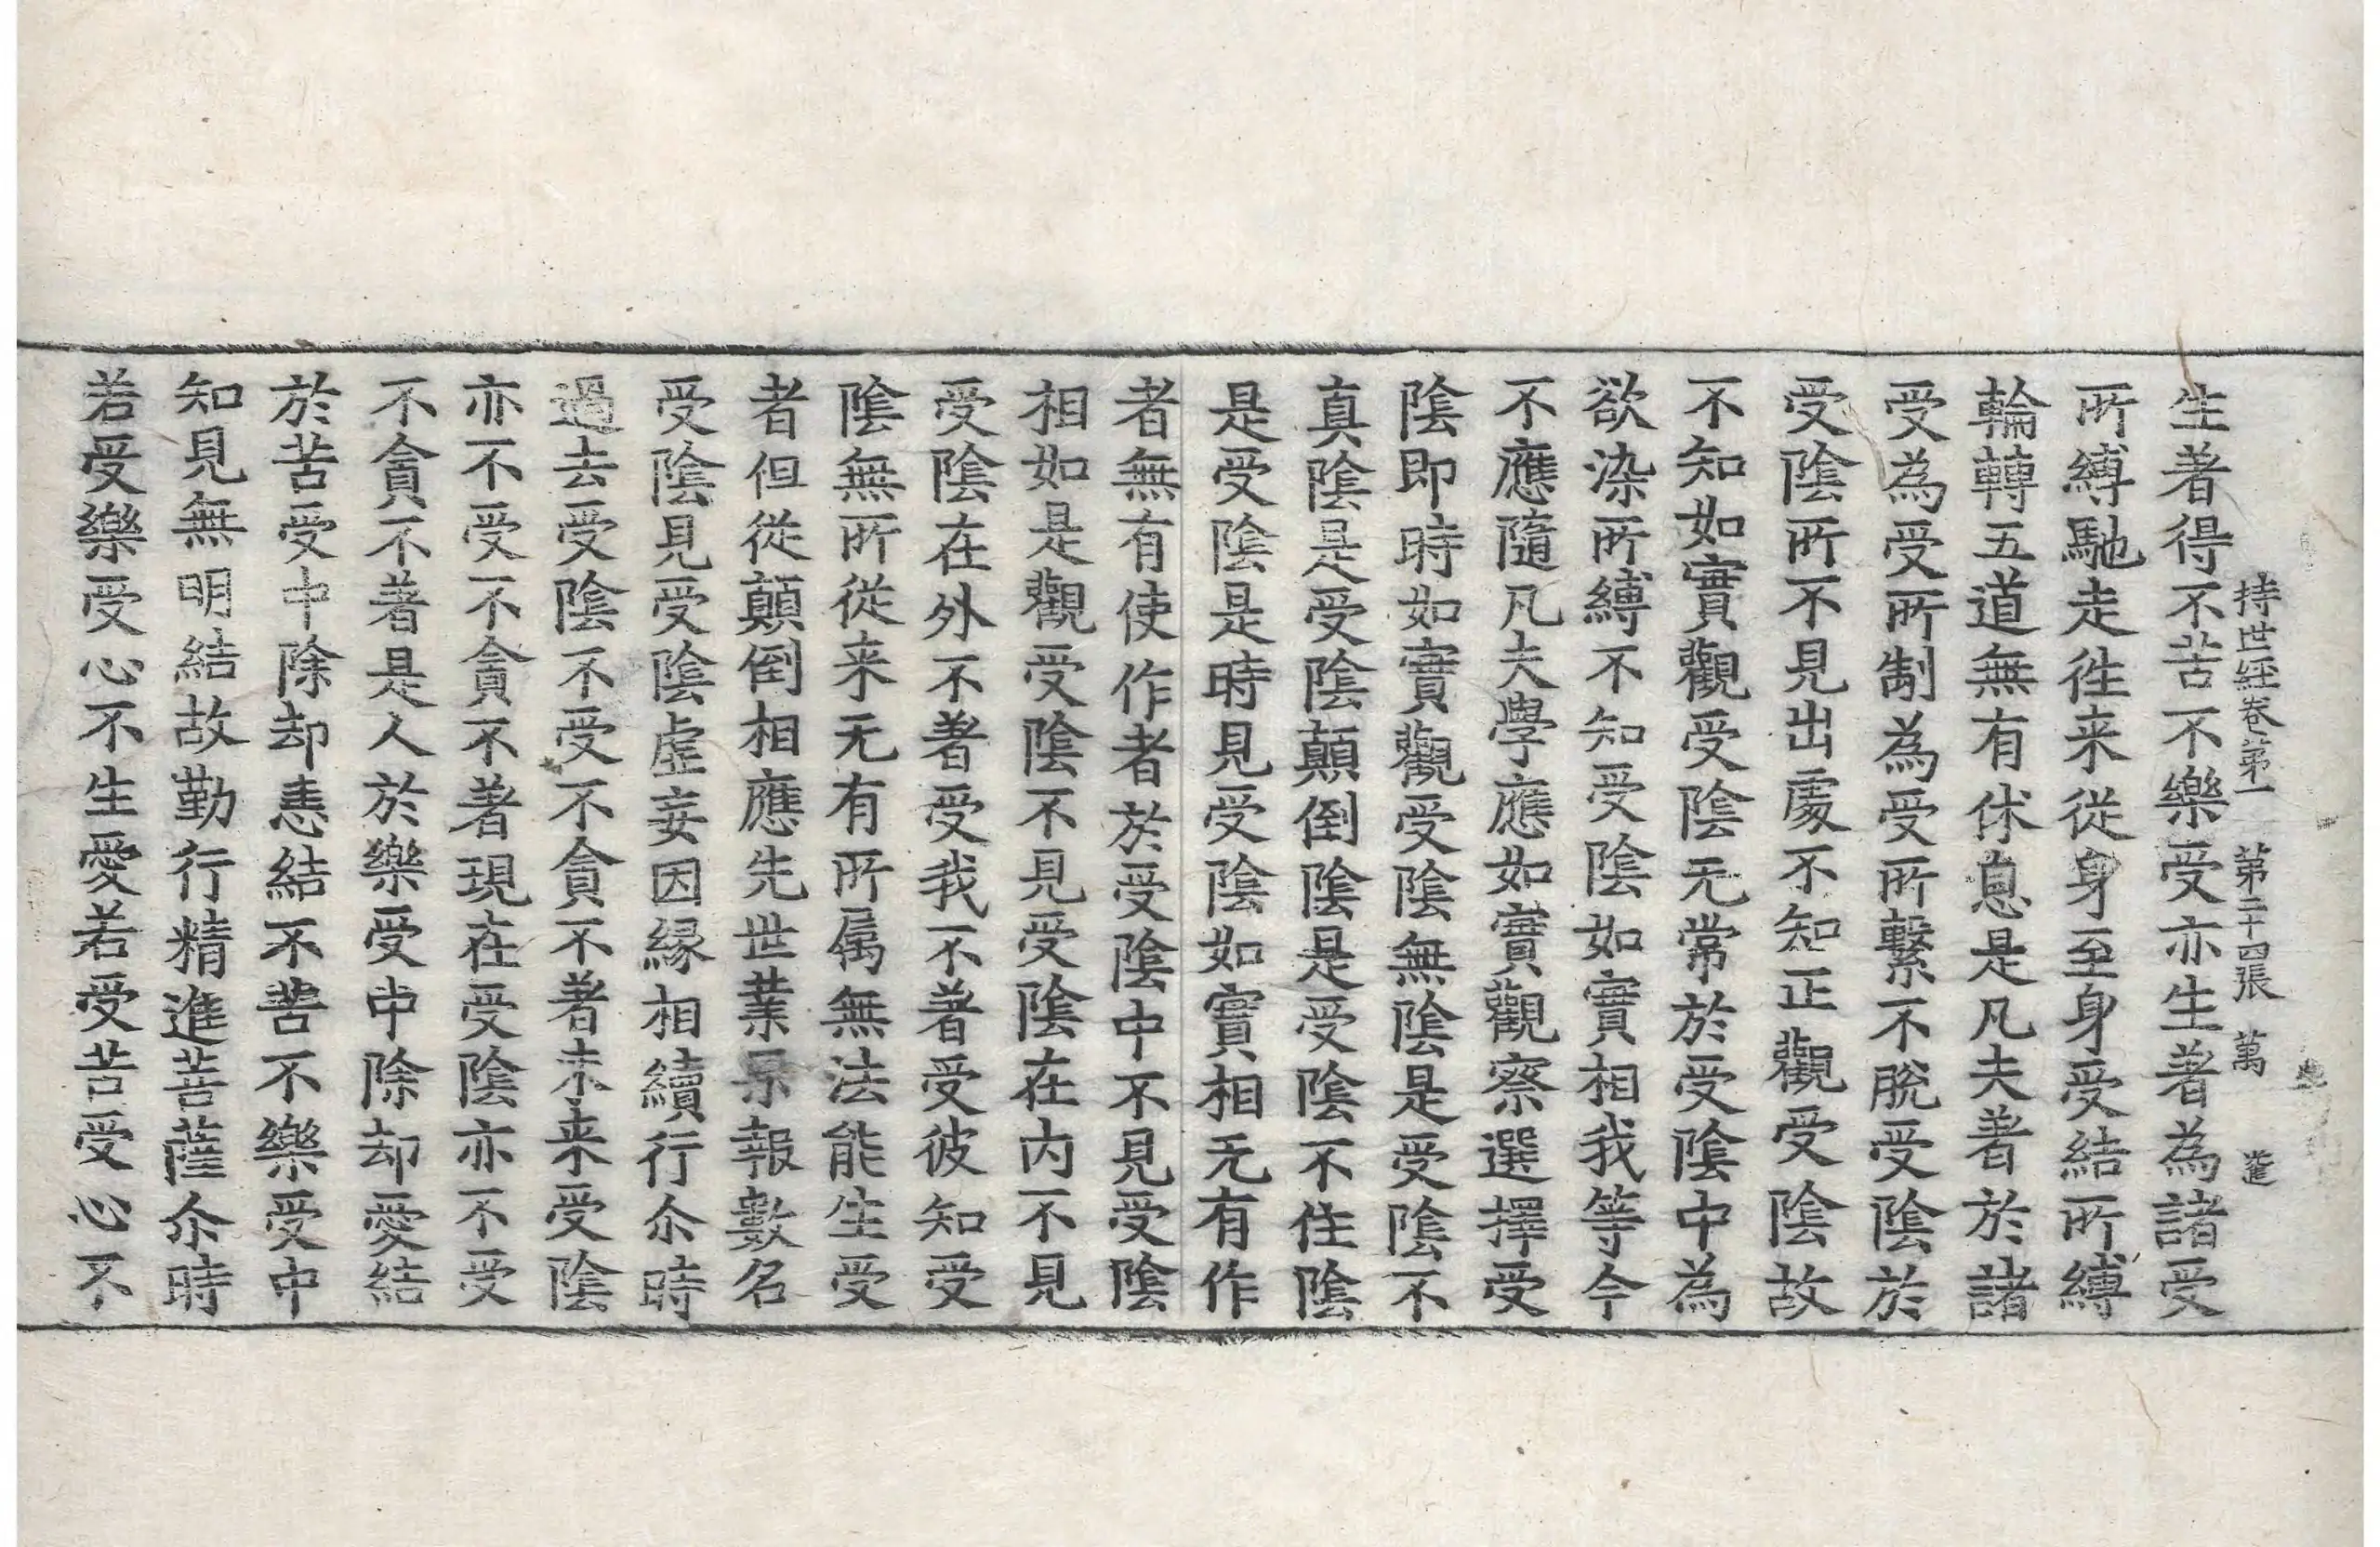 持世経卷第一 第二十四張 萬 進
生著得不苦不樂受亦生著為諸受
所縛馳走徃来從身至身受結所縛
輪轉五道無有休息是凡夫著於諸
受為受所制為受所繫不脫受陰於
受陰所不見出處不知正觀受陰故
不知如實觀受陰无常於受陰中為
欲染所縛不知受陰如實相我等今
不應隨凡夫學應如實觀察選擇受
陰即時如實觀受陰無陰是受陰不
真陰是受陰顛倒陰是受陰不住陰
是受陰是時見受陰如實相无有作
者無有使作者於受陰中不見受陰
相如是觀受陰不見受陰在内不見
受陰在外不著受我不著受彼知受
陰無所從来无有所属無法能生受
者但從顛倒相應先世業果報數名
受陰見受陰虛妄因縁相續行尒時
過去受陰不受不貪不著未来受陰
亦不受不貪不著現在受陰亦不受
不貪不著是人於樂受中除却愛結
於苦受中除却恚結不苦不樂受中
知見無明結故勤行精進菩薩尒時
若受樂受心不生愛若受苦受心不